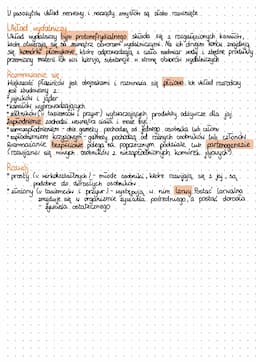 U pasożytów układ nerwowy i narządy zmysłów są słabo rozwinięte.
Układ wydalniczy
Układ wydalniczy typu protonefrydialnego składa się z rozgałęzionych kanałów,
które otwierają się na zewnątrz otworami wydalniczymi. Na ich drugim końcu znajdują
się komórki płomykowe, które odprowadzają z ciała nadmiar wody i zbędne produkty
przemiany materii do
Rozmnażanie się
Większość płazińców jest obojnakami i rozmnaża się płciowo. Ich układ rozrodczy
jest zbudowany z:
• jajników i jąder
• kanałów wyprowadzających
• (u tasiemców i przywr) wytwarzających produkty odżywcze dla jaj
Zapłodnienie zachodzi wewnątrz ciała i może być:
• samozapłodnieniem - obie gamety pochodzą od jednego osobnika lub członu
• zapłodnieniem krzyżowym - gamety pochodzą od różnych osobników lub członów
Rozmnażanie bezpłciowe polega na poprzecznym podziale lub partenogenezie
(rozwijaniu się nowych osobników z niezapłodnionych komórek jajowych).
Rozwój
• prosty (u wirkokształtnych) - młode osobniki, które rozwijają się z jaj, są
podobne do dorosłych osobników
• złożony (u tasiemców i przywr) - występują w nim larwy. Postać larwalna
znajduje się w organizmie żywiciela pośredniego, a postać dorosła
- żywiciela ostatecznego